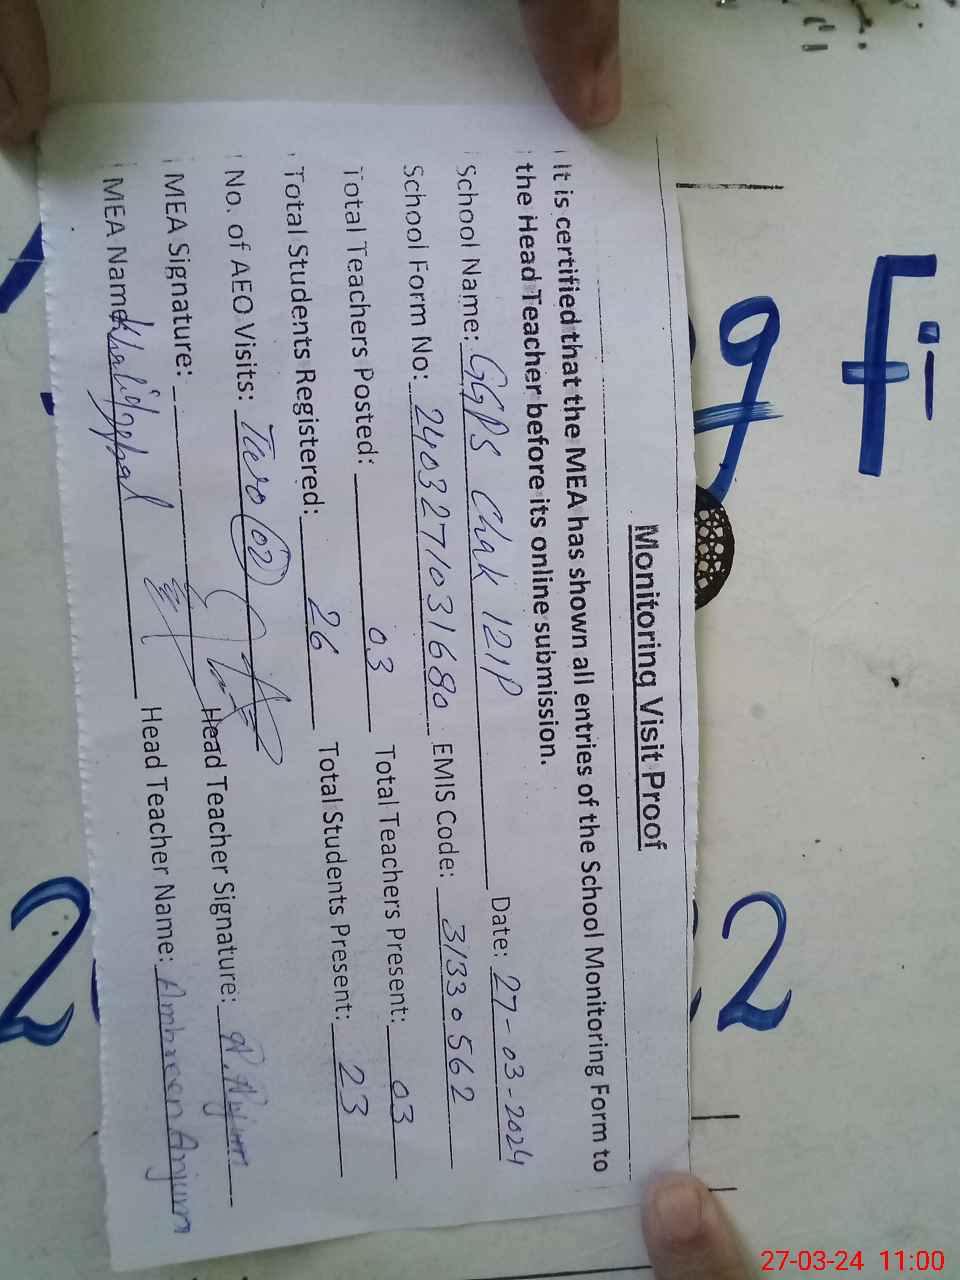 Monitoring Visit Proof
It is certified that the MEA has shown all entries of the School Monitoring Form to
the Head Teacher before its online submission.
School Name: GGPS Chak 121P Date: 27-03-2024
School Form No: 2403271031680 EMIS Code: 31330562
Total Teachers Posted: 03 Total Teachers Present: 03
Total Students Registered: 26 Total Students Present: 23
No. of AEO Visits: Two (02)
MEA Signature: Head Teacher Signature: A. Anjum
MEA Name: Khalid Iqbal Head Teacher Name: Ambreen Anjum
27-03-24 11:00